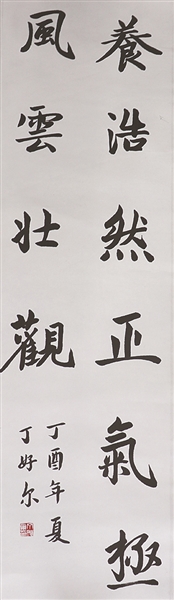 養浩然正氣極
風雲壯觀
丁酉年夏
丁好尔